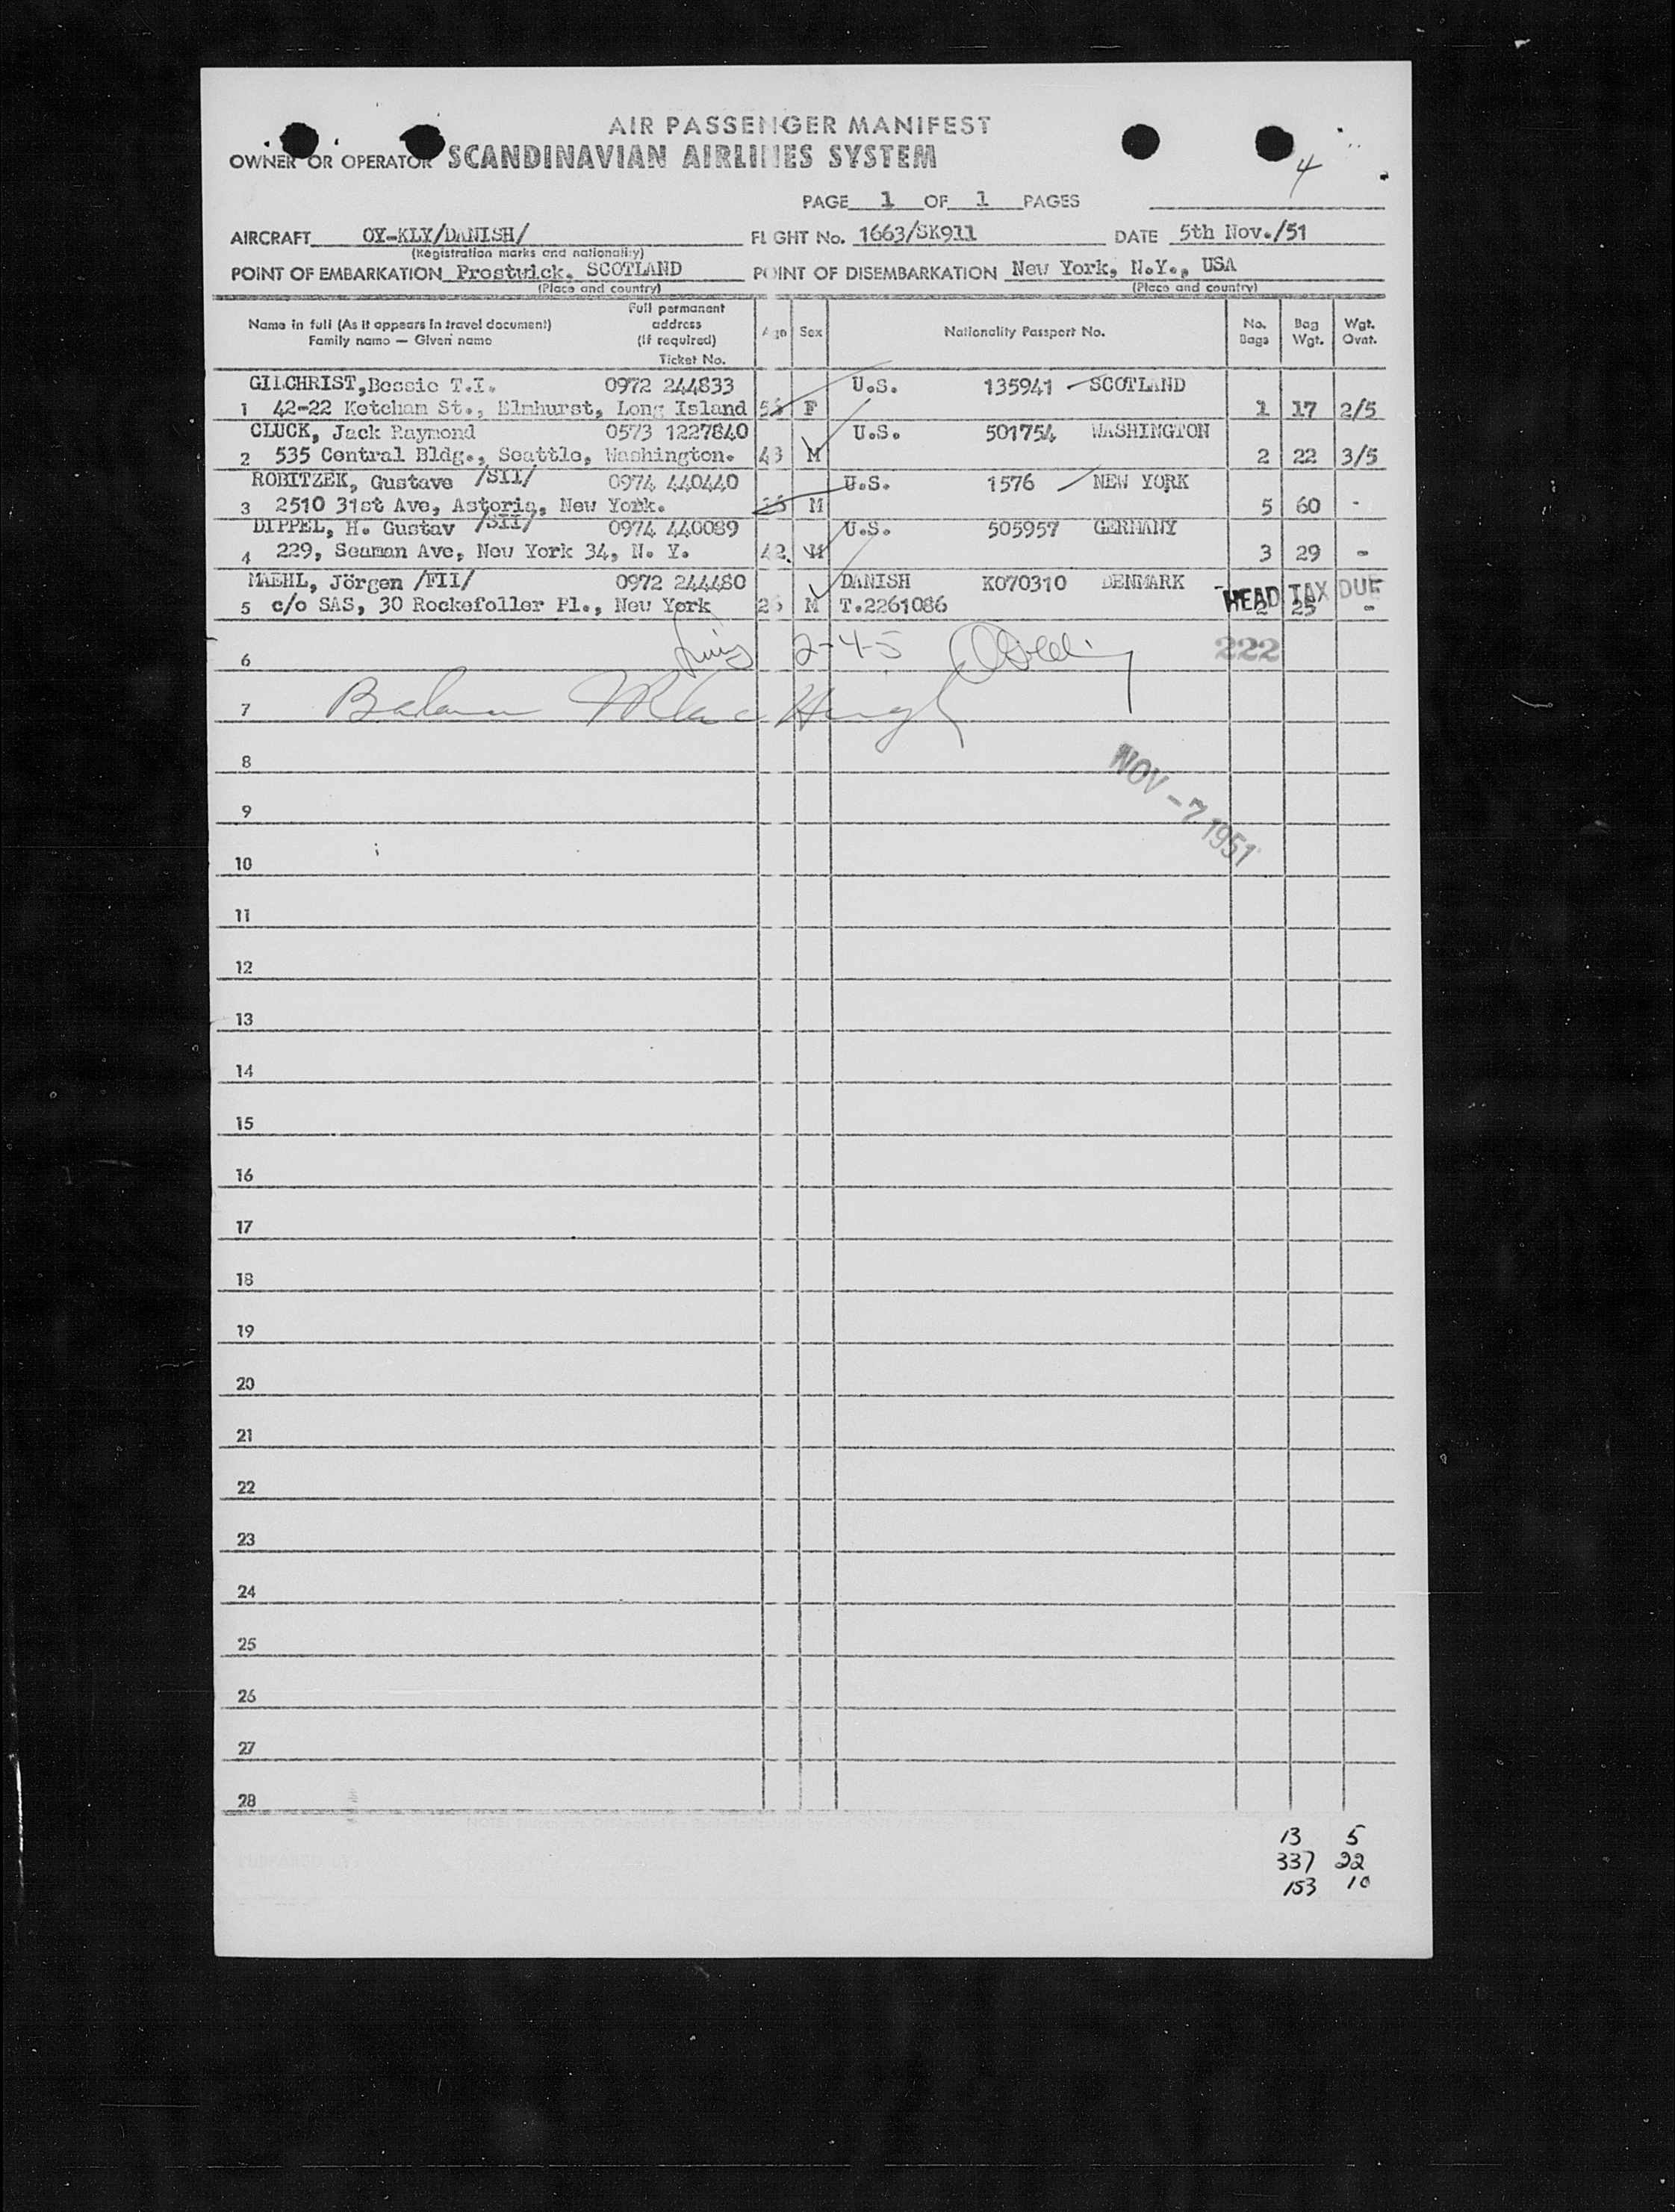 AIR PASSENGER MANIFEST
OWNER OR OPERATOR SCANDINAVIAN AIRLINES SYSTEM
4
PAGE 1 OF 1 PAGES
AIRCRAFT OY-KLY/DANISH/ FLIGHT No. 1663/SK911 DATE 5th Nov./51
(Registration marks and nationality)
POINT OF EMBARKATION Prestwick, SCOTLAND POINT OF DISEMBARKATION New York, N.Y., USA
(Place and country) (Place and country)
Name in full (As it appears in travel document) Family name — Given name
Full permanent address (If required) Ticket No.
Age Sex Nationality Passport No. No. Bags Bag Wgt. Wgt. Ovnt.
GILCHRIST, Bessie T.I. 0972 244833 U.S. 135941 SCOTLAND
1 42-22 Ketcham St., Elmhurst, Long Island F 1 17 2/5
CLUCK, Jack Raymond 0573 1227840 U.S. 501754 WASHINGTON
2 535 Central Bldg., Seattle, Washington. 43 M 2 22 3/5
ROBITZEK, Gustave /SII/ 0974 440440 U.S. 1576 NEW YORK
3 2510 31st Ave, Astoria, New York. M 5 60 -
DIPPEL, H. Gustav /SII/ 0974 440089 U.S. 505957 GERMANY
4 229, Seaman Ave, New York 34, N. Y. 42 M 3 29 -
MAEHL, Jörgen /FII/ 0972 244480 DANISH K070310 DENMARK
HEAD TAX DUE
5 c/o SAS, 30 Rockefeller Pl., New York M T.2261086 2 25 -
2-4-5 222
6
7
NOV -7 1951
8
9
10
11
12
13
14
15
16
17
18
19
20
21
22
23
24
25
26
27
28
13 5
337 22
153 10